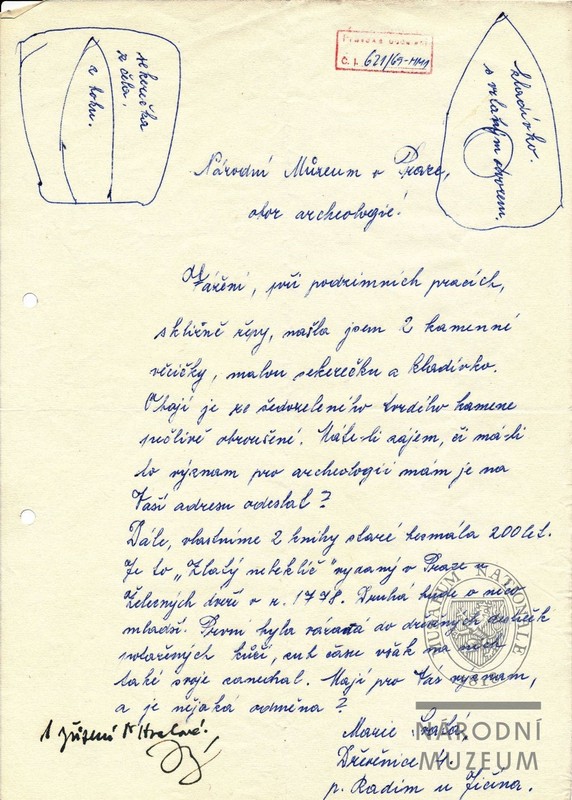 sekerečka
z čela.
z boku.
Č. j. 621/69-MM1
kladívko.
s vrtaným otvorem.
Národní Můzeum v Praze,
obor archeologie!
Vážení, při podzimních pracích,
sklizně řepy, našla jsem 2 kamenné
věcičky, malou sekerečku a kladívko.
Obojí je ze šedozeleného tvrdého kamene
pečlivě obroušené. Máte-li zájem, či má-li
to význam pro archeologii mám je na
Vaší adresu odeslat?
Dále, vlastníme 2 knihy staré bezmála 200 let.
Je to „Zlatý nebeklíč" vydaný v Praze u
železných dveří v r. 1778. Druhá bude o něco
mladší. První byla vázaná do dřevěných destiček
potažených kůží, zub času však na nich
také svoje zanechal. Mají pro Vás význam,
a je nějaká odměna?
Marie
Dřevěnice 4.
p. Radim u Jičína.
MUSEUM NATIONALE
1818
NÁRODNÍ
MUZEUM